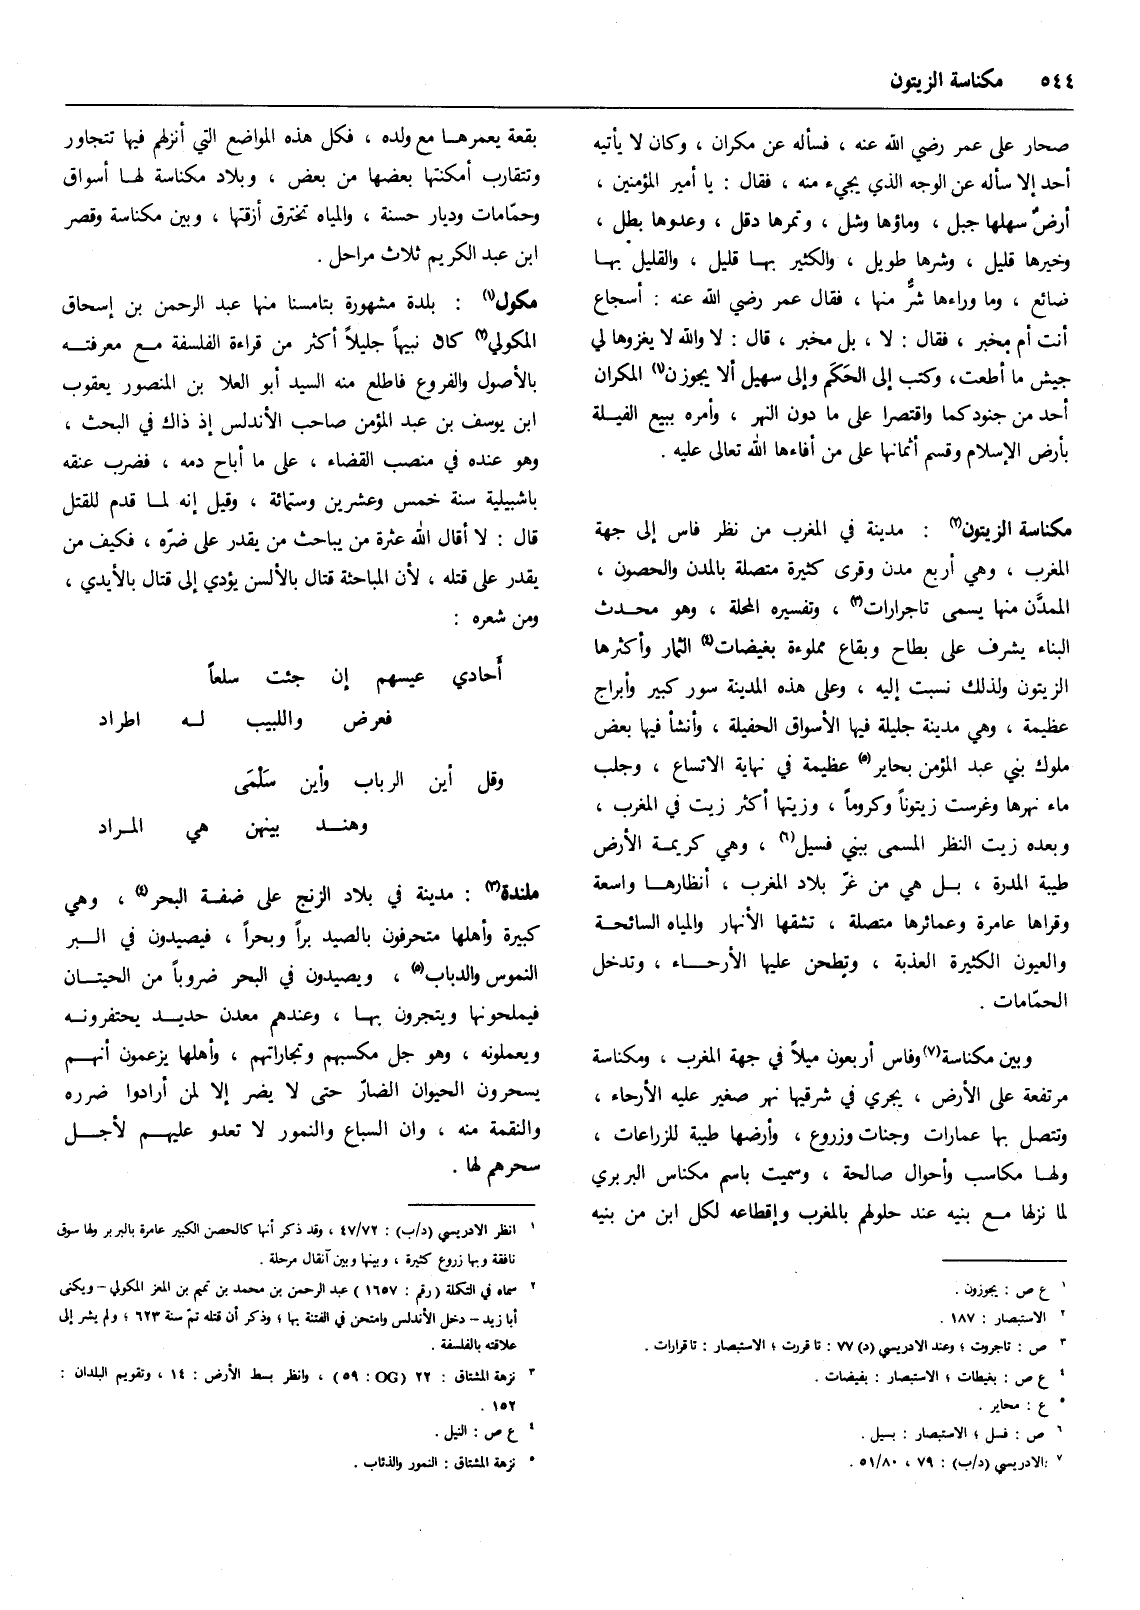 ٥٤٤ مكناسة الزيتون
صحار على عمر رضي الله عنه ، فسأله عن مكران ، وكان لا يأتيه
أحد إلا سأله عن الوجه الذي يجيء منه ، فقال : يا أمير المؤمنين ،
أرضٌ سهلها جبل ، وماؤها وشل ، وتمرها دقل ، وعدوها بطل ،
وخيرها قليل ، وشرها طويل ، والكثير بهـا قليل ، والقليل بهـا
ضائع ، وما وراءها شرٌّ منها ، فقال عمر رضي الله عنه : أسجاع
أنت أم مخبر ، فقال : لا ، بل مخبر ، قال : لا والله لا يغزوها لي
جيش ما أطعت، وكتب إلى الحَكَم وإلى سهيل ألا يجوزن(١) المكران
أحد من جنودكما واقتصرا على ما دون النهر ، وأمره ببيع الفيـلة
بأرض الإسلام وقسم أثمانها على من أفاءها الله تعالى عليه .
مكناسة الزيتون(٢) : مدينة في المغرب من نظر فاس إلى جهة
المغرب ، وهي أربع مدن وقرى كثيرة متصلة بالمدن والحصون ،
الممدَّن منها يسمى تاجرارات(٣) ، وتفسيره المحلة ، وهو محـدث
البناء يشرف على بطاح وبقاع مملوءة بغيضات(٤) الثمار وأكثرها
الزيتون ولذلك نسبت إليه ، وعلى هذه المدينة سور كبير وأبراج
عظيمة ، وهي مدينة جليلة فيها الأسواق الحفيلة ، وأنشأ فيها بعض
ملوك بني عبد المؤمن بحاير(٥) عظيمة في نهاية الاتساع ، وجلب
ماء نهرها وغرست زيتوناً وكروماً ، وزيتها أكثر زيت في المغرب ،
وبعده زيت النظر المسمى ببني فسيل(٦) ، وهي كريمـة الأرض
طيبة المدرة ، بـل هي من غرّ بلاد المغرب ، أنظارهـا واسعة
وقراها عامرة وعمائرها متصلة ، تشقها الأنهار والمياه السائحـة
والعيون الكثيرة العذبة ، وتطحن عليها الأرحـاء ، وتدخل
الحمّامات .
وبين مكناسة(٧) وفاس أربعون ميلاً في جهة المغرب ، ومكناسة
مرتفعة على الأرض ، يجري في شرقيها نهر صغير عليه الأرحاء ،
وتتصل بها عمارات وجنات وزروع ، وأرضها طيبة للزراعات ،
ولهـا مكاسب وأحوال صالحة ، وسميت باسم مكناس البربري
لما نزلها مـع بنيه عند حلولهم بالمغرب وإقطاعه لكل ابن من بنيه
١ ع ص : يجوزون .
٢ الاستبصار : ١٨٧ .
٣ ص : تاجروت ؛ وعند الادريسي (د) ٧٧ : تاقررت ؛ الاستبصار : تاقرارات .
٤ ع ص : بغيطات ؛ الاستبصار : بفيضات .
٥ ع : محاير .
٦ ص : فسل ؛ الاستبصار : بسيل .
٧ الادريسي (د/ب) : ٧٩ ، ٥١/٨٠ .
بقعة يعمرهـا مع ولده ، فكل هذه المواضع التي أنزلهم فيها تتجاور
وتتقارب أمكنتها بعضها من بعض ، وبلاد مكناسة لهـا أسواق
وحمّامات وديار حسنة ، والمياه تخترق أزقتها ، وبين مكناسة وقصر
ابن عبد الكريم ثلاث مراحل .
مكول(١) : بلدة مشهورة بتامسنا منها عبد الرحمن بن إسحاق
المكولي(٢) كان نبيهاً جليلاً أكثر من قراءة الفلسفة مـع معرفتـه
بالأصول والفروع فاطلع منه السيد أبو العلا بن المنصور يعقوب
ابن يوسف بن عبد المؤمن صاحب الأندلس إذ ذاك في البحث ،
وهو عنده في منصب القضاء ، على ما أباح دمه ، فضرب عنقه
باشبيلية سنة خمس وعشرين وستمائة ، وقيل إنه لمـا قدم للقتل
قال : لا أقال الله عثرة من يباحث من يقدر على ضرّه ، فكيف من
يقدر على قتله ، لأن المباحثة قتال بالألسن يؤدي إلى قتال بالأيدي ،
ومن شعره :
أَحادي عيسهم إن جئت سلعاً
فعرض واللبيب لـه اطراد
وقل أين الرباب وأين سَلْمَى
وهنـد بينهن هي المـراد
ملندة(٣) : مدينة في بلاد الزنج على ضفـة البحر(٤) ، وهي
كبيرة وأهلها متحرفون بالصيد براً وبحراً ، فيصيدون في البـر
النموس والدباب(٥) ، ويصيدون في البحر ضروباً من الحيتـان
فيملحونها ويتجرون بهـا ، وعندهم معدن حديـد يحتفرونـه
ويعملونه ، وهو جل مكسبهم وتجاراتهم ، وأهلها يزعمون أنهـم
يسحرون الحيوان الضارّ حتى لا يضر إلا لمن أرادوا ضرره
والنقمة منه ، وان السباع والنمور لا تعدو عليهـم لأجـل
سحرهم لها .
١ انظر الادريسي (د/ب) : ٤٧/٧٢ ، وقد ذكر أنها كالحصن الكبير عامرة بالبربر ولها سوق
نافقة وبها زروع كثيرة ، وبينها وبين آنقال مرحلة .
٢ سماه في التكملة (رقم : ١٦٥٧) عبد الرحمن بن محمد بن تميم بن المعز المكولي – ويكنى
أبا زيد – دخل الأندلس وامتحن في الفتنة بها ؛ وذكر أن قتله تمّ سنة ٦٢٣ ؛ ولم يشر إلى
علاقته بالفلسفة .
٣ نزهة المشتاق : ٢٢ (OG : ٥٩) ، وانظر بسط الأرض : ١٤ ، وتقويم البلدان :
١٥٢ .
٤ ع ص : النيل .
٥ نزهة المشتاق : النمور والذئاب .